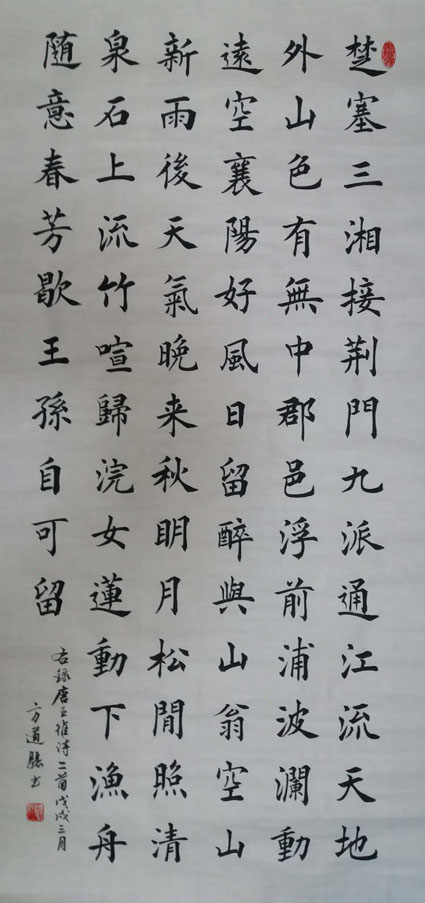 楚塞三湘接荆門九派通江流天地
外山色有無中郡邑浮前浦波瀾動
遠空襄陽好風日留醉與山翁空山
新雨後天氣晚来秋明月松閒照清
泉石上流竹喧歸浣女蓮動下漁舟
随意春芳歇王孫自可留
右録唐王維诗二首戊戌三月
方道勝书